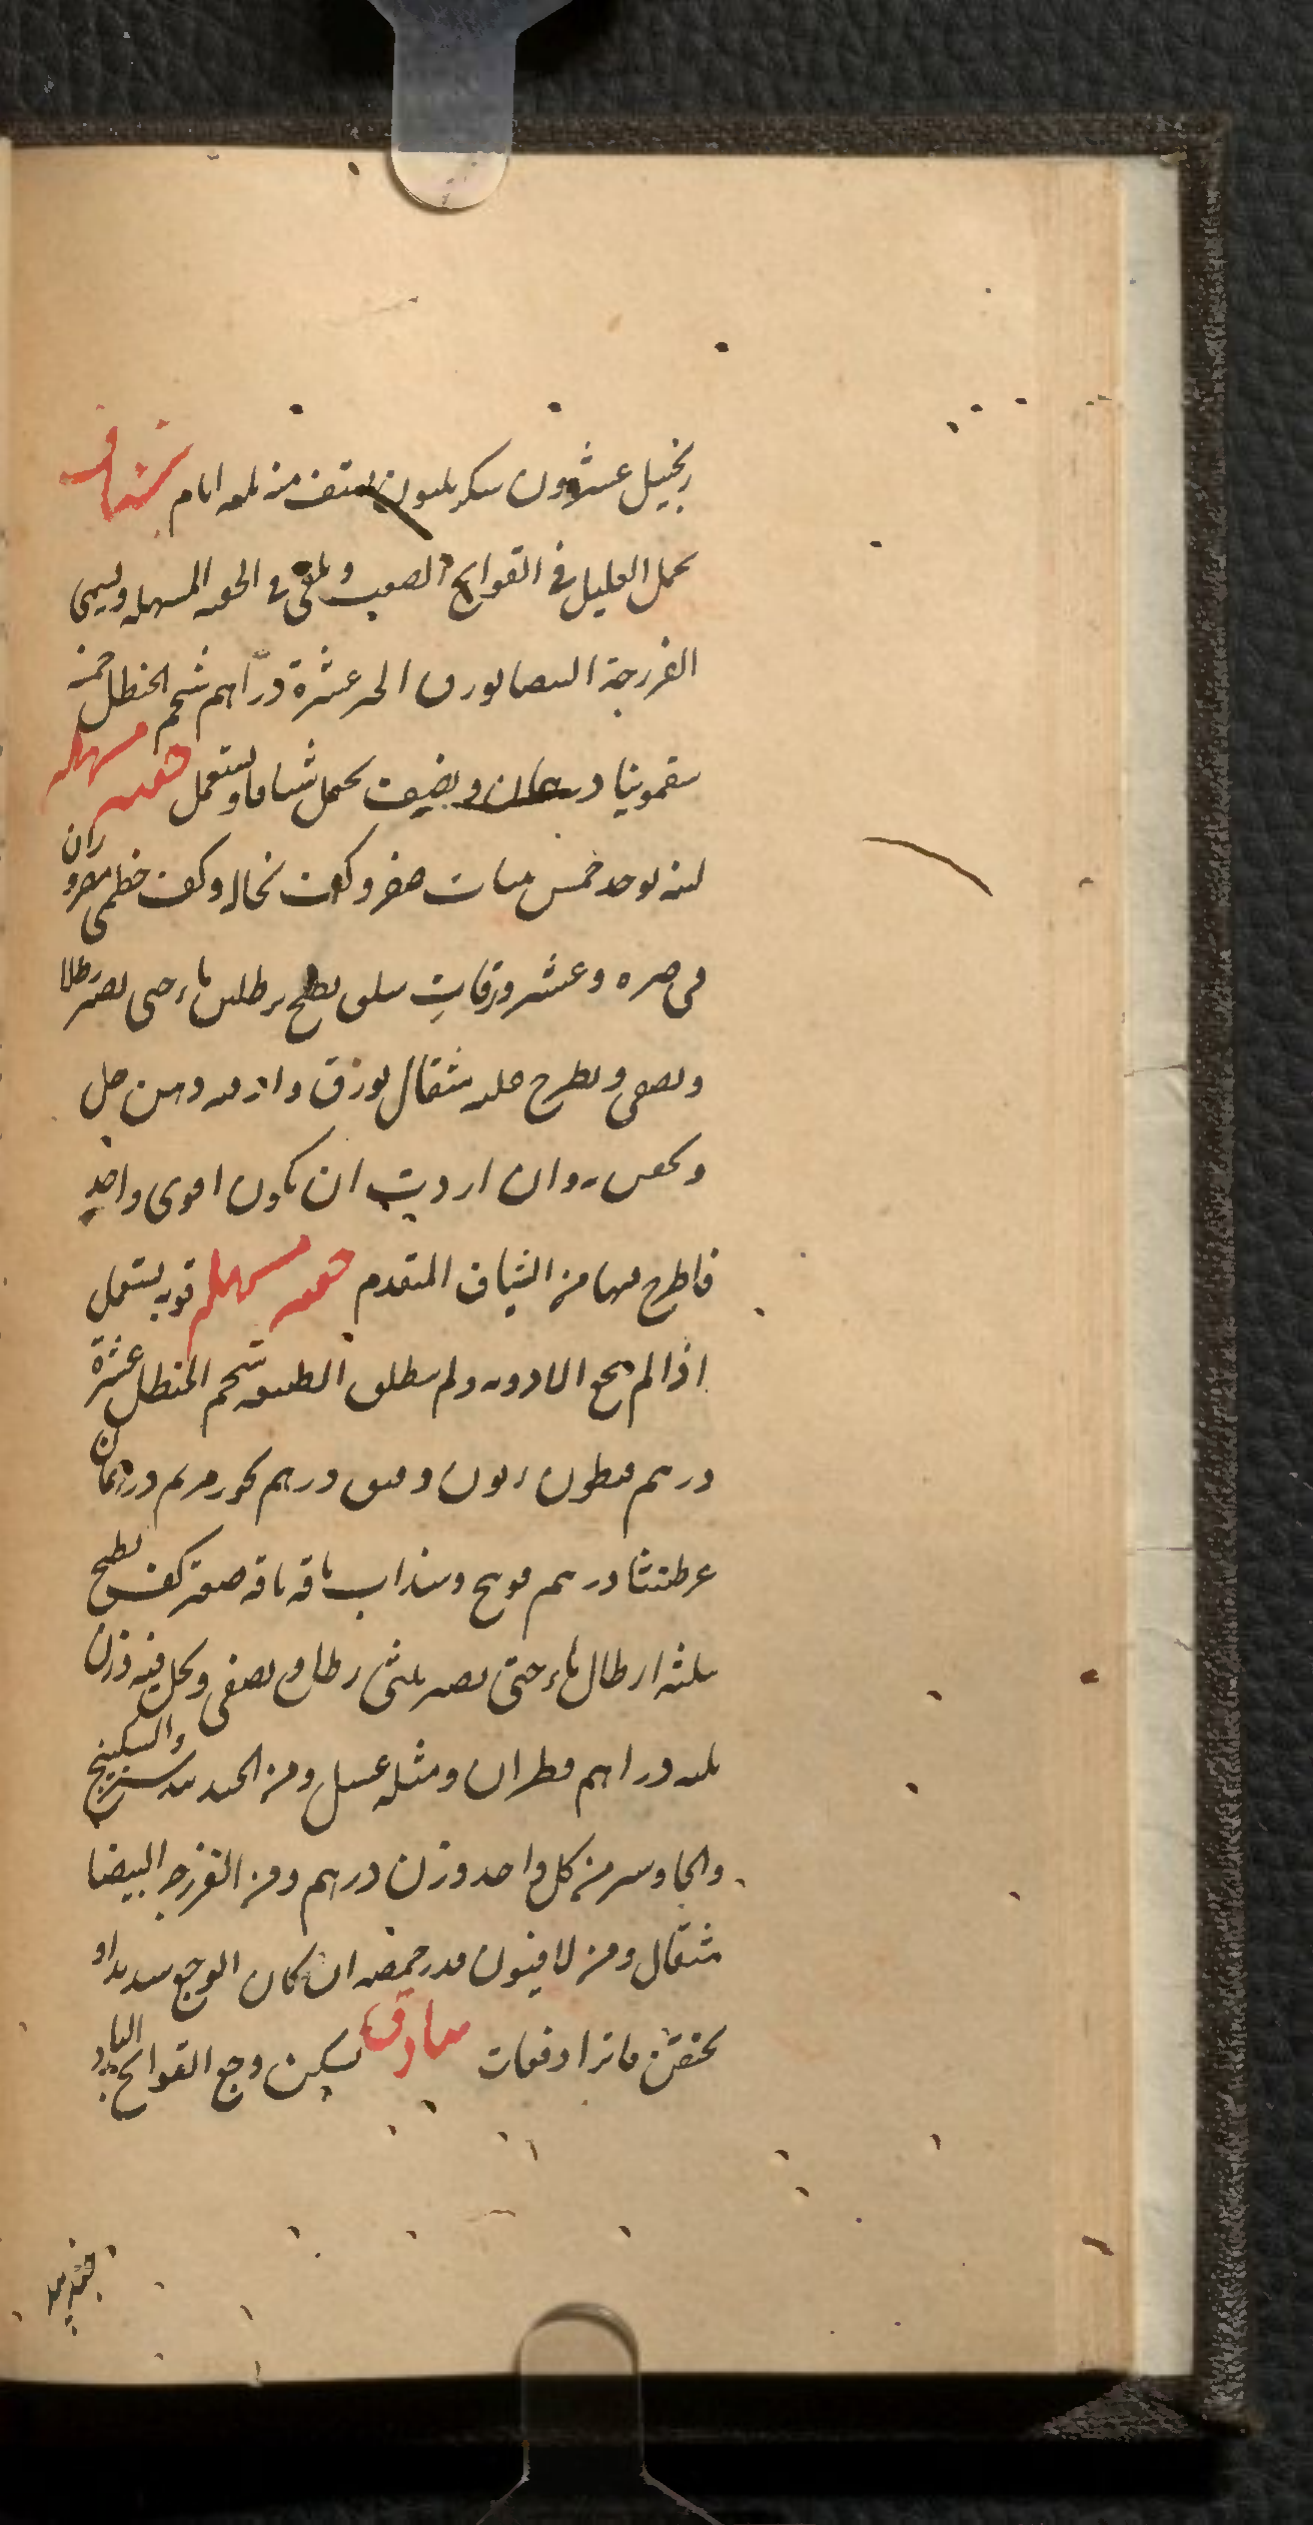 زنجبيل عشرون سكر ثلثون يستف منه ثلثه ايام شياف
يحمل العليل في القولنج الصعب ويلقى في الحقنه المسهله ويسمى
الفرزجة البيضا بورق الخبز عشرة دراهم شحم الحنظل خمسه
سقمونيا درهمان ونصف يحمل شيافا ويستعمل حقنه مسهله
لينه يوخذ خمس تينات صفر وكف نخاله وكف خطمى مصروران
فى صره وعشر ورقات سلق يطبخ برطلين ماء حتى يصير رطلا
ويصفى ويطرح عليه مثقال بورق واوقيه دهن حل
ويحقن به وان اردت ان يكون اقوى واحد
فاطرح فيها من الشياف المتقدم حقنه مسهله قويه يستعمل
اذا لم ينجع الادويه ولم ينطلق الطبيعه شحم الحنطل عشرة
درهم قنطوريون دقيق درهم بخور مريم درهمان
عرطنيثا درهم فوتنج وسذاب باقه باقه صعتر كف يطبخ
بثلثه ارطال ماء حتى يصير ثلثى رطل ويصفى ويحل فيه وزن
ثلثه دراهم قطران ومثله عسل ومن الجندبيدستر والسكبينج
والجاوسير من كل واحد وزن درهم ومن الفرزجه البيضا
مثقال ومن لافيون قدر حمصه ان كان الوجع شديدا و
يحقن فاترا دفعات يسكن وجع القولنج البارد